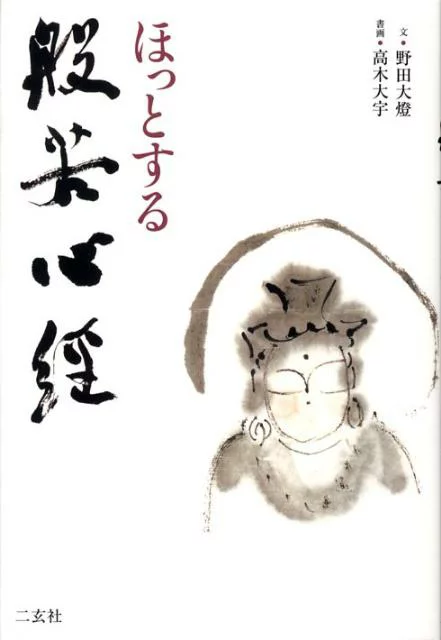 文・野田大燈
書画・高木大宇
ほっとする
般若心経
二玄社